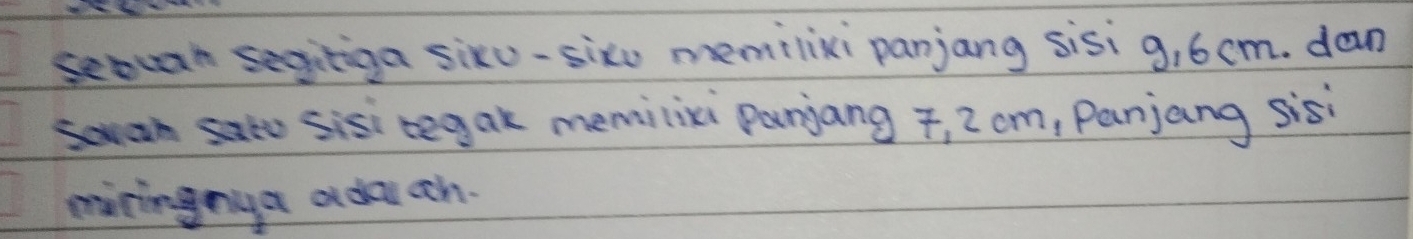 Sebuah segitiga siku-siku memiliki panjang sisi 9,6 cm. dan
Salah satu sisi tegak memiliki panjang 7,2 cm, Panjang sisi
miringnya adalah.